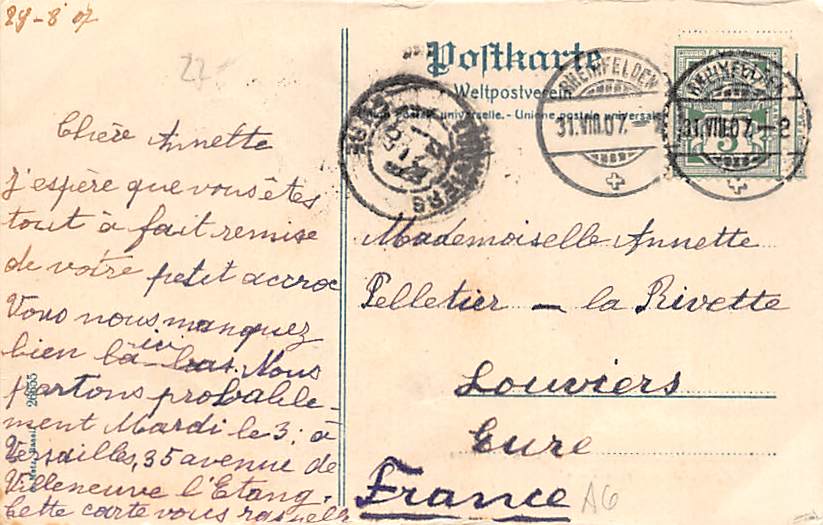 28-8 07
27
Chère Annette
J'espère que vous êtes
tout à fait remise
de votre petit accroc
Vous nous manquez
bien là-bas ici. Nous
partons probable-
ment Mardi le 3, à
Versailles, 35 avenue de
Villeneuve l'Etang.
Cette carte vous rappelle
26655
Postkarte
Weltpostverein
postale universelle. - Unione postale universale
LOUVIERS
EURE
RHEINFELDEN
31.VIII.07.
RHEINFELDEN
31.VIII.07.-2
5
Mademoiselle Annette
Pelletier - la Rivette
Louviers
Eure
France
A6